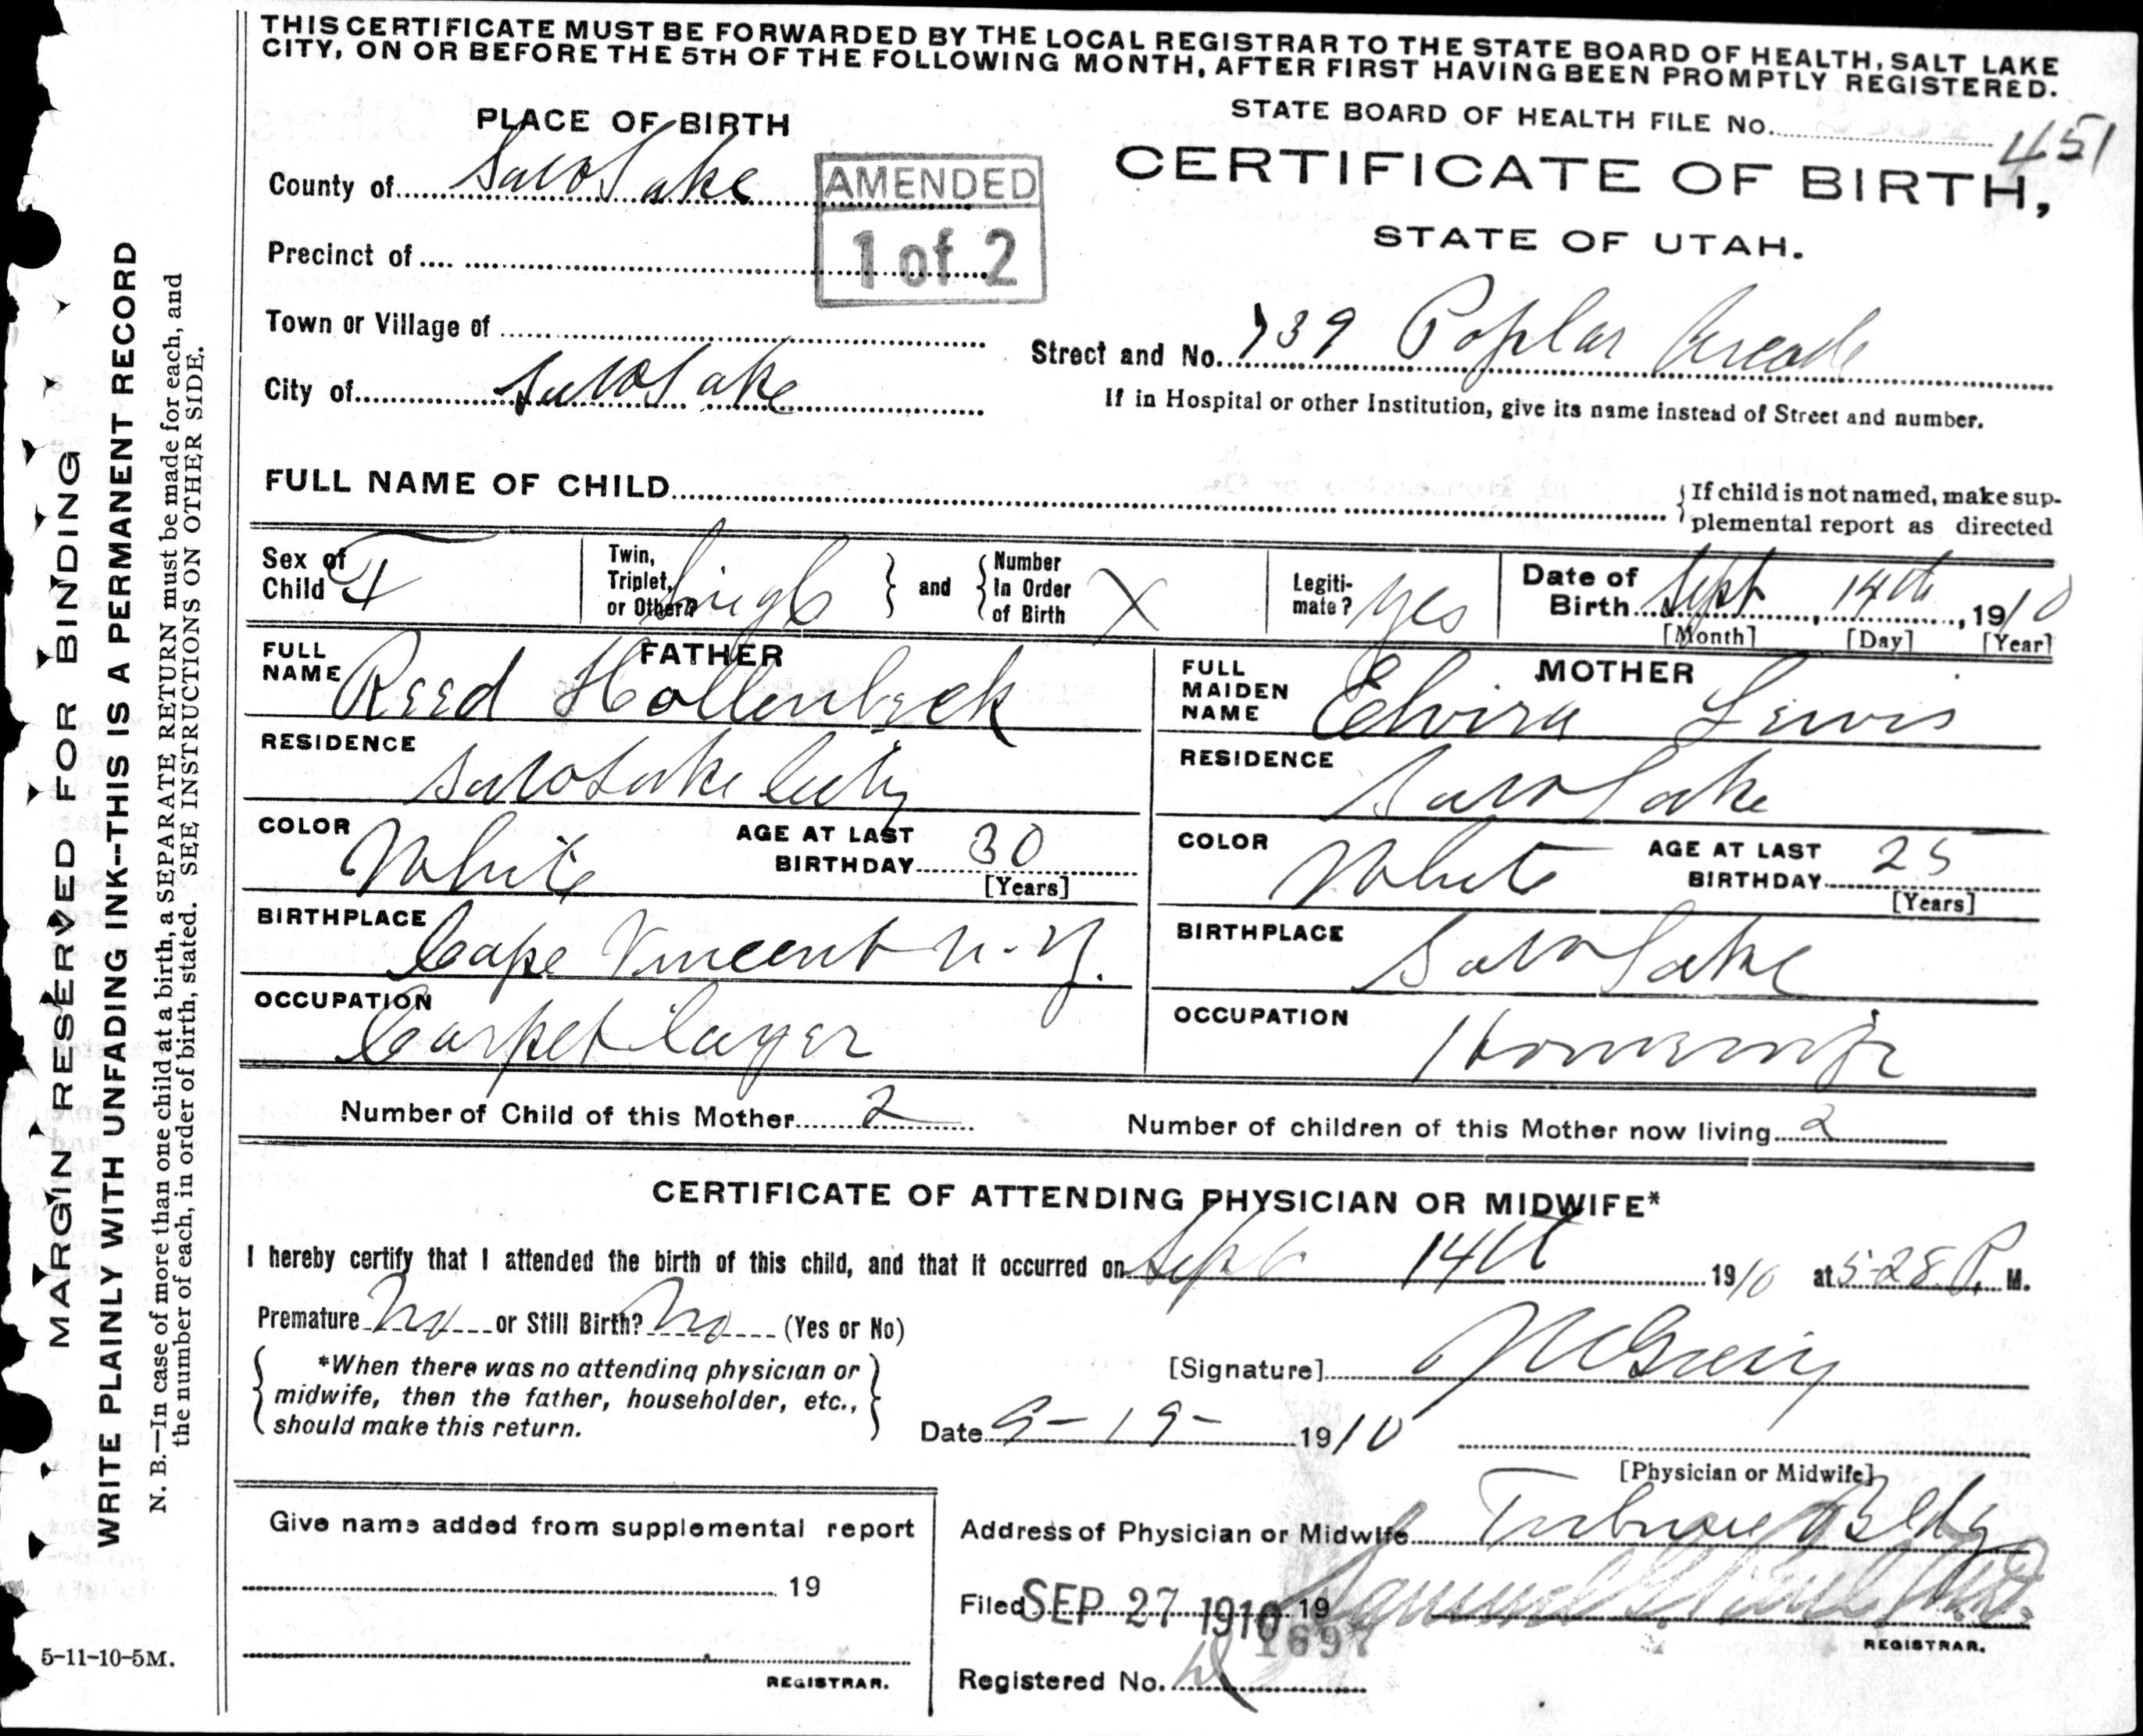 THIS CERTIFICATE MUST BE FORWARDED BY THE LOCAL REGISTRAR TO THE STATE BOARD OF HEALTH, SALT LAKE
CITY, ON OR BEFORE THE 5TH OF THE FOLLOWING MONTH, AFTER FIRST HAVING BEEN PROMPTLY REGISTERED.
STATE BOARD OF HEALTH FILE No. 451
PLACE OF BIRTH
CERTIFICATE OF BIRTH,
STATE OF UTAH.
County of Salt Lake
AMENDED
1 of 2
Precinct of
Town or Village of
Street and No. 739 Poplar
City of Salt Lake
If in Hospital or other Institution, give its name instead of Street and number.
FULL NAME OF CHILD
If child is not named, make sup-
plemental report as directed
Sex of Child F
Twin, Triplet, or Other? Single
and
Number In Order of Birth X
Legiti-mate? yes
Date of Birth Sept 14th, 1910
[Month] [Day] [Year]
FATHER
FULL NAME Reed Hollenbeck
RESIDENCE Salt Lake City
COLOR White
AGE AT LAST BIRTHDAY 30
[Years]
BIRTHPLACE Cape Vincent N.Y.
OCCUPATION Carpet layer
MOTHER
FULL MAIDEN NAME Elvira Lewis
RESIDENCE Salt Lake
COLOR White
AGE AT LAST BIRTHDAY 25
[Years]
BIRTHPLACE Salt Lake
OCCUPATION Housewife
Number of Child of this Mother 2
Number of children of this Mother now living 2
CERTIFICATE OF ATTENDING PHYSICIAN OR MIDWIFE*
I hereby certify that I attended the birth of this child, and that it occurred on Sept 14th 1910 at 5-28 P. M.
Premature No or Still Birth? No (Yes or No)
*When there was no attending physician or
midwife, then the father, householder, etc.,
should make this return.
[Signature]
Date 9-19-1910
[Physician or Midwife]
Give name added from supplemental report
19
REGISTRAR.
Address of Physician or Midwife Tribune Bldg
Filed SEP 27 1910 19
1697
REGISTRAR.
Registered No.
MARGIN RESERVED FOR BINDING
WRITE PLAINLY WITH UNFADING INK--THIS IS A PERMANENT RECORD
N. B.—In case of more than one child at a birth, a SEPARATE RETURN must be made for each, and
the number of each, in order of birth, stated. SEE INSTRUCTIONS ON OTHER SIDE.
5-11-10-5M.